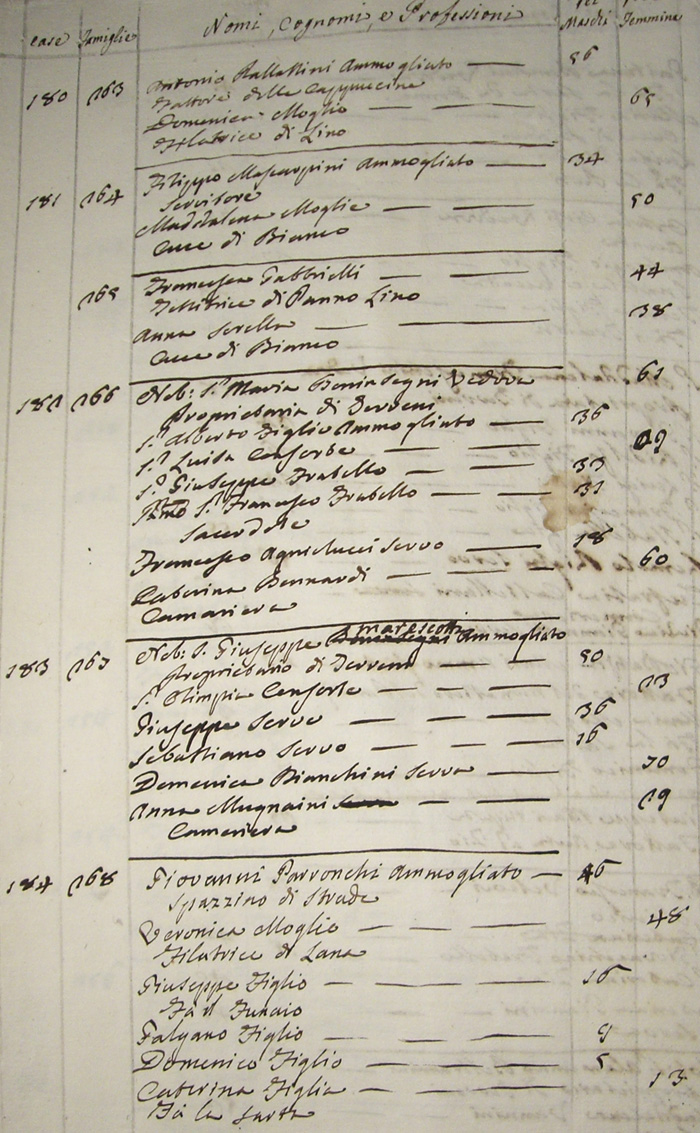 Case Famiglie Nomi, Cognomi, e Professioni Maschi Femmine
180 163 Antonio Ammogliato — 56
Fattore delle Cappuccine
Domenica Moglie — — 65
Filatrice di Lino
181 164 Filippo Mascarpini Ammogliato — 34
Servitore
Maddalena Moglie — — 50
Cuce di Bianco
165 Francesca Gabbrielli — — 44
Tessitrice di Panno Lino
Anna Sorella — — 38
Cuce di Bianco
182 166 Nob: S.ra Maria Vedova 61
Proprietaria di Terreni
S.r Alberto Figlio Ammogliato — 36
S.ra Luisa Consorte — — 29
S.r Giuseppe Fratello — — 33
S.r Francesco Fratello — — 31
Sacerdote
Francesco Agnolucci Servo — 18
Caterina Bennardi — — 60
Cameriera
marescotti
183 167 Nob: S.r Giuseppe Ammogliato
Proprietario di Terreni — — 50
S.ra Olimpia Consorte — — — 23
Giuseppe Servo — — — 36
Sebastiano Servo — — — 16
Domenica Bianchini Serva — — 70
Anna Mugnaini — — 29
Cameriera
184 168 Giovanni Parronchi Ammogliato — 46
Spazzino di Strade
Veronica Moglie — — — 48
Filatrice di Lana
Giuseppe Figlio — — — — 16
Fa il Funaio
Falgano Figlio — — — — 9
Domenico Figlio — — — — 5
Caterina Figlia — — — — 13
Fa la Sarta